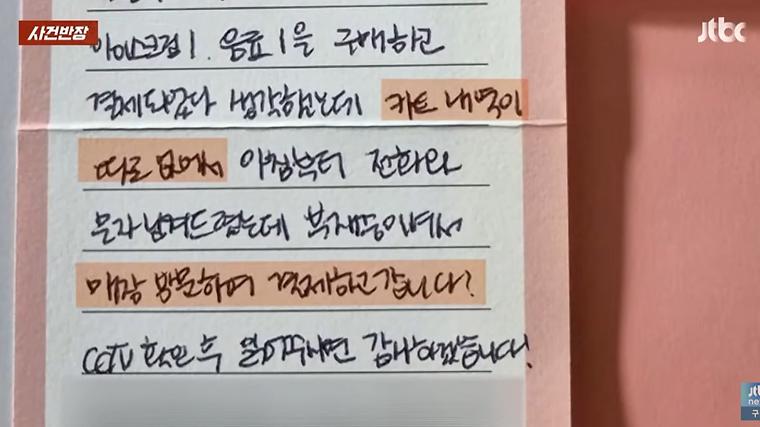 사건반장
jtbc
아이스크림1, 음료1을 구매하고
결제되었다 생각하였는데 카드내역이
따로 없어서 아침부터 전화와
문자남겨드렸는데 부재중이셔서
매장 방문하여 결제하고갑니다!
CCTV 확인 후 열어주시면 감사하겠습니다!